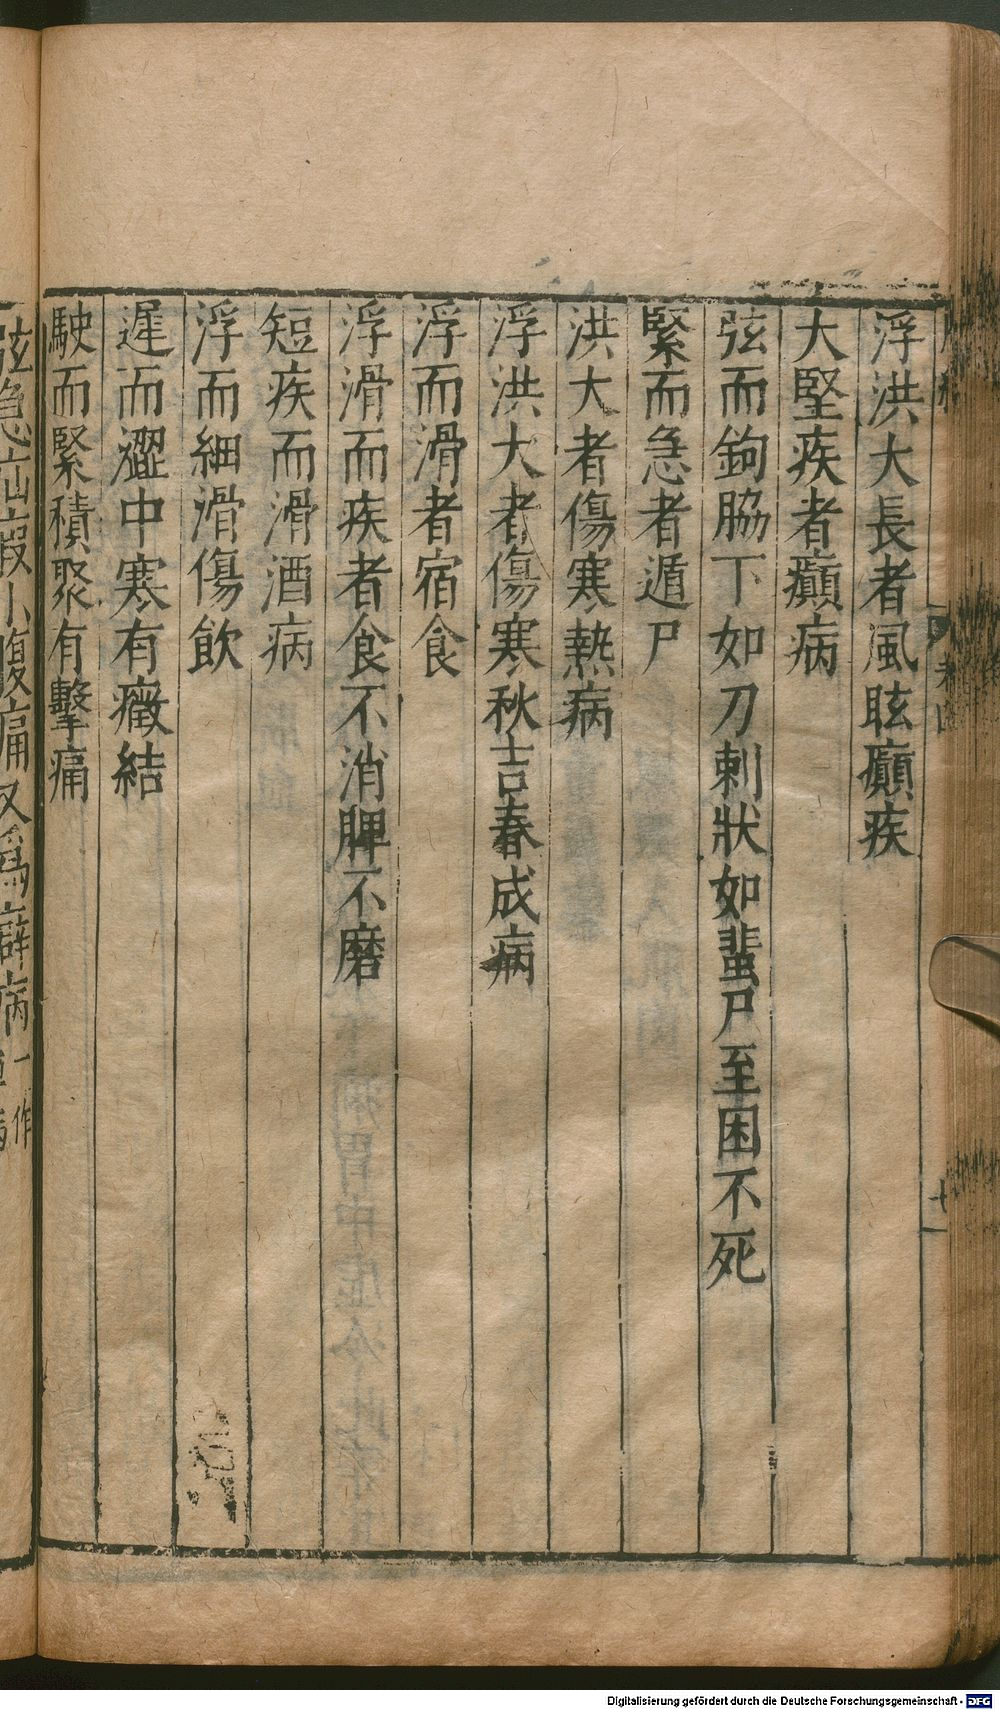 浮洪大長者風眩癲疾
大堅疾者癲病
弦而鉤脇下如刀刺狀如蜚尸至困不死
緊而急者遁尸
洪大者傷寒熱病
浮洪大者傷寒秋吉春成病
浮而滑者宿食
浮滑而疾者食不消脾不磨
短疾而滑酒病
浮而細滑傷飲
遲而澀中寒有癥結
駛而緊積聚有擊痛
弦急疝瘕小腹痛又為癖病一作
Digitalisierung gefördert durch die Deutsche Forschungsgemeinschaft - DFG